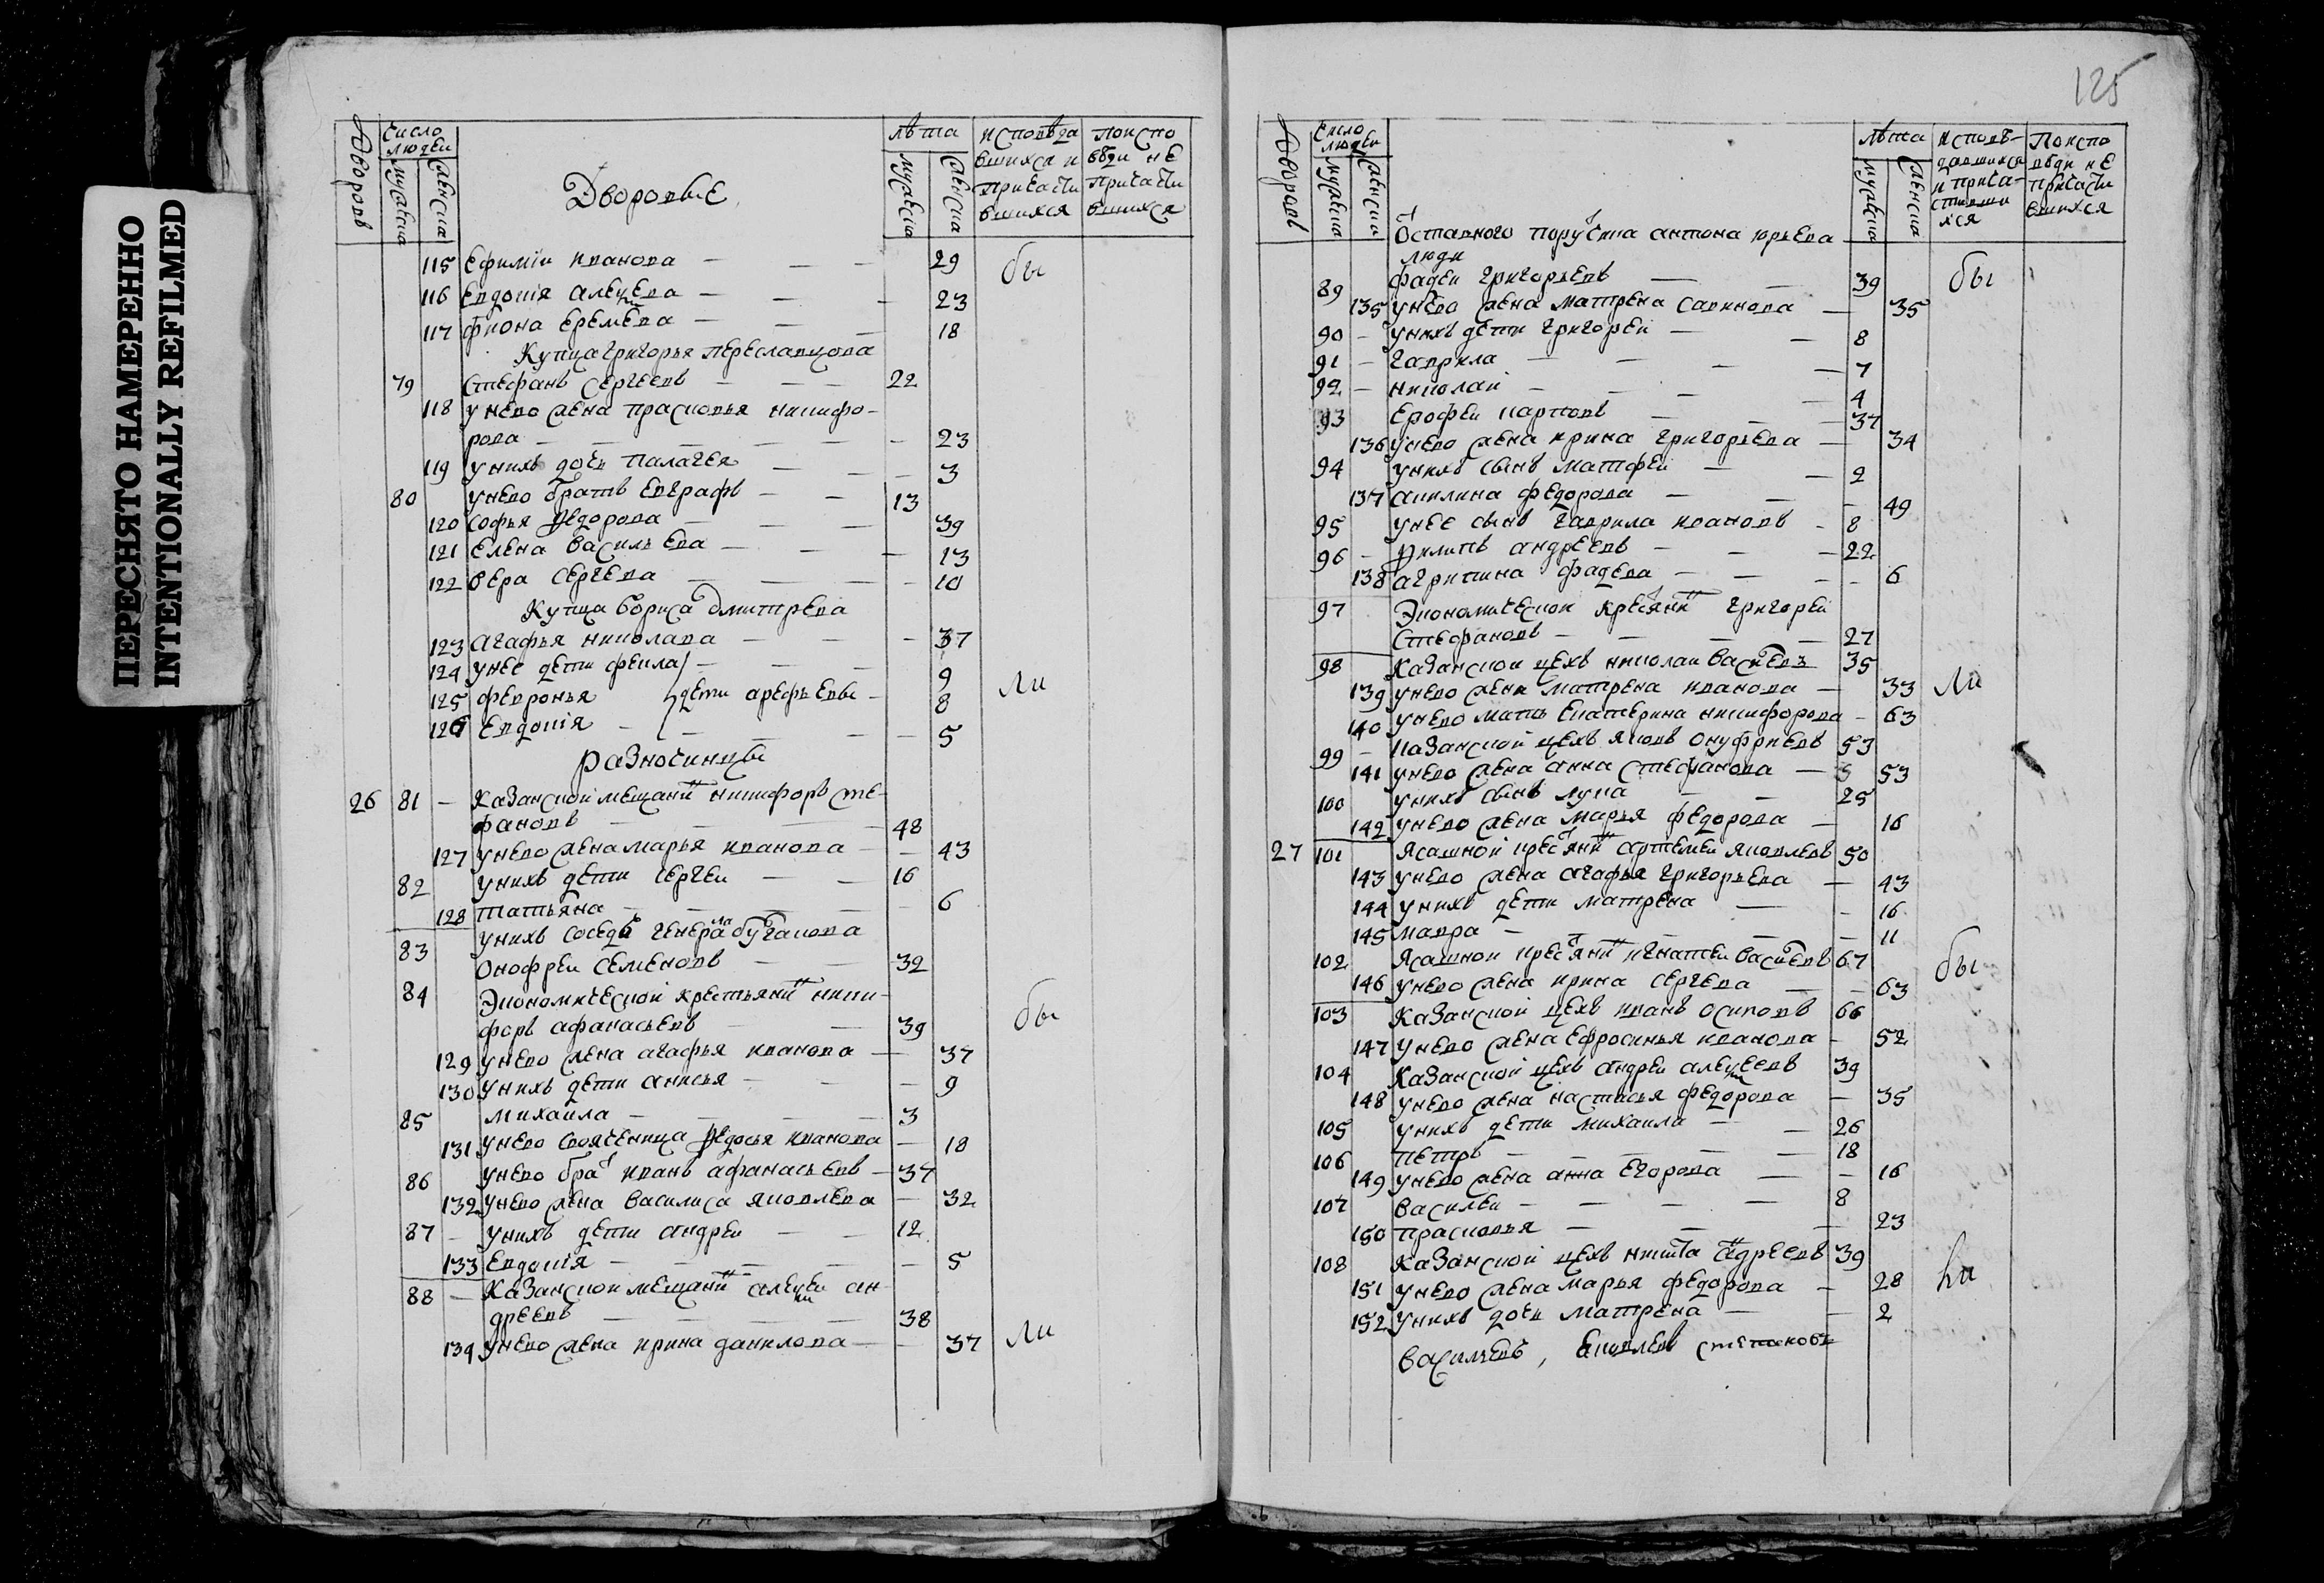 ПЕРЕСНЯТО НАМЕРЕННО
INTENTIONALLY REFILMED
Дворовъ
Число людей
мужеска
женска
Дворовые
лѣта
мужеска
женска
исповѣдавшихся и причастившихся
По исповѣди не причастившихся
115 Ефимiи иванова — 29 бы
116 Евдокiя алексеева — 23
117 фиона еремеева — 18
Купца григорья переславцова
79 Стефанъ сергеевъ — 22
118 у него жена прасковья никифо-
рова — 23
119 у нихъ дочь палагея — 3
80 у него братъ евграфъ — 13
120 софья федорова — 39
121 елена васильева — 13
122 вера сергеева — 10
Купца бориса дмитрева
123 агафья николаева — 37
124 у нее дети фекла — 9
125 февронья дети арефьевы — 8 ли
126 Евдокiя — 5
разночинцы
26 81 — казанской мещанинъ никифоръ сте-
фановъ — 48
127 у него жена марья иванова — 43
82 у нихъ дети сергей — 16
128 татьяна — 6
83 у нихъ соседъ генерала бутакова
онофрей семеновъ — 32
84 Экономической крестьянинъ ники-
форъ афанасьевъ — 39 бы
129 у него жена агафья иванова — 37
130 у нихъ дети анисья — 9
85 михаила — 3
131 у него свояченица федосья иванова — 18
86 у него братъ иванъ афанасьевъ — 37
132 у него жена василиса яковлева — 32
87 — у нихъ дети андрей — 12
133 Евдокiя — 5
88 — казанской мещанинъ алексей ан-
дреевъ — 38
134 у него жена ирина данилова — 37 ли
125
Дворовъ
Число людей
мужеска
женска
лѣта
мужеска
женска
исповѣдавшихся и причастившихся
По исповѣди не причастившихся
отставного порутчика антона юрьева
люди
89 фадей григорьевъ — 39 бы
135 у него жена матрена савинова — 35
90 — у нихъ дети григорей — 8
91 — гаврила — 7
92 — николай — 4
93 ерофей карповъ — 37
136 у него жена ирина григорьева — 34
94 у нихъ сынъ матфей — 2
137 акилина федорова — 49
95 у нее сынъ гаврила ивановъ — 8
96 — филипъ андреевъ — 22
138 агрипина фадеева — 6
97 Экономической крестьянинъ григорей
стефановъ — 27
98 казанской цехъ николай васильевъ 35
139 у него жена матрена иванова — 33 ли
140 у него мать екатерина никифорова — 63
99 — казанской цехъ яковъ онуфриевъ 53
141 у него жена анна стефанова — 53
100 у нихъ сынъ лука — 25
142 у него жена марья федорова — 16
27 101 ясашной крестьянинъ артемей яковлевъ 50
143 у него жена агафья григорьева — 43
144 у нихъ дети матрена — 16
145 мавра — 11
102 ясашной крестьянинъ игнатей васильевъ 67 бы
146 у него жена ирина сергеева — 63
103 казанской цехъ иванъ осиповъ 66
147 у него жена ефросинья иванова — 52
104 казанской цехъ андрей алексеевъ 39
148 у него жена настасья федорова — 35
105 у нихъ дети михаила — 26
106 петръ — 18
149 у него жена анна егорова — 16
107 василей — 8
150 прасковья — 23
108 казанской цехъ никита андреевъ 39
151 у него жена марья федорова — 28 ли
152 у нихъ дочь матрена — 2